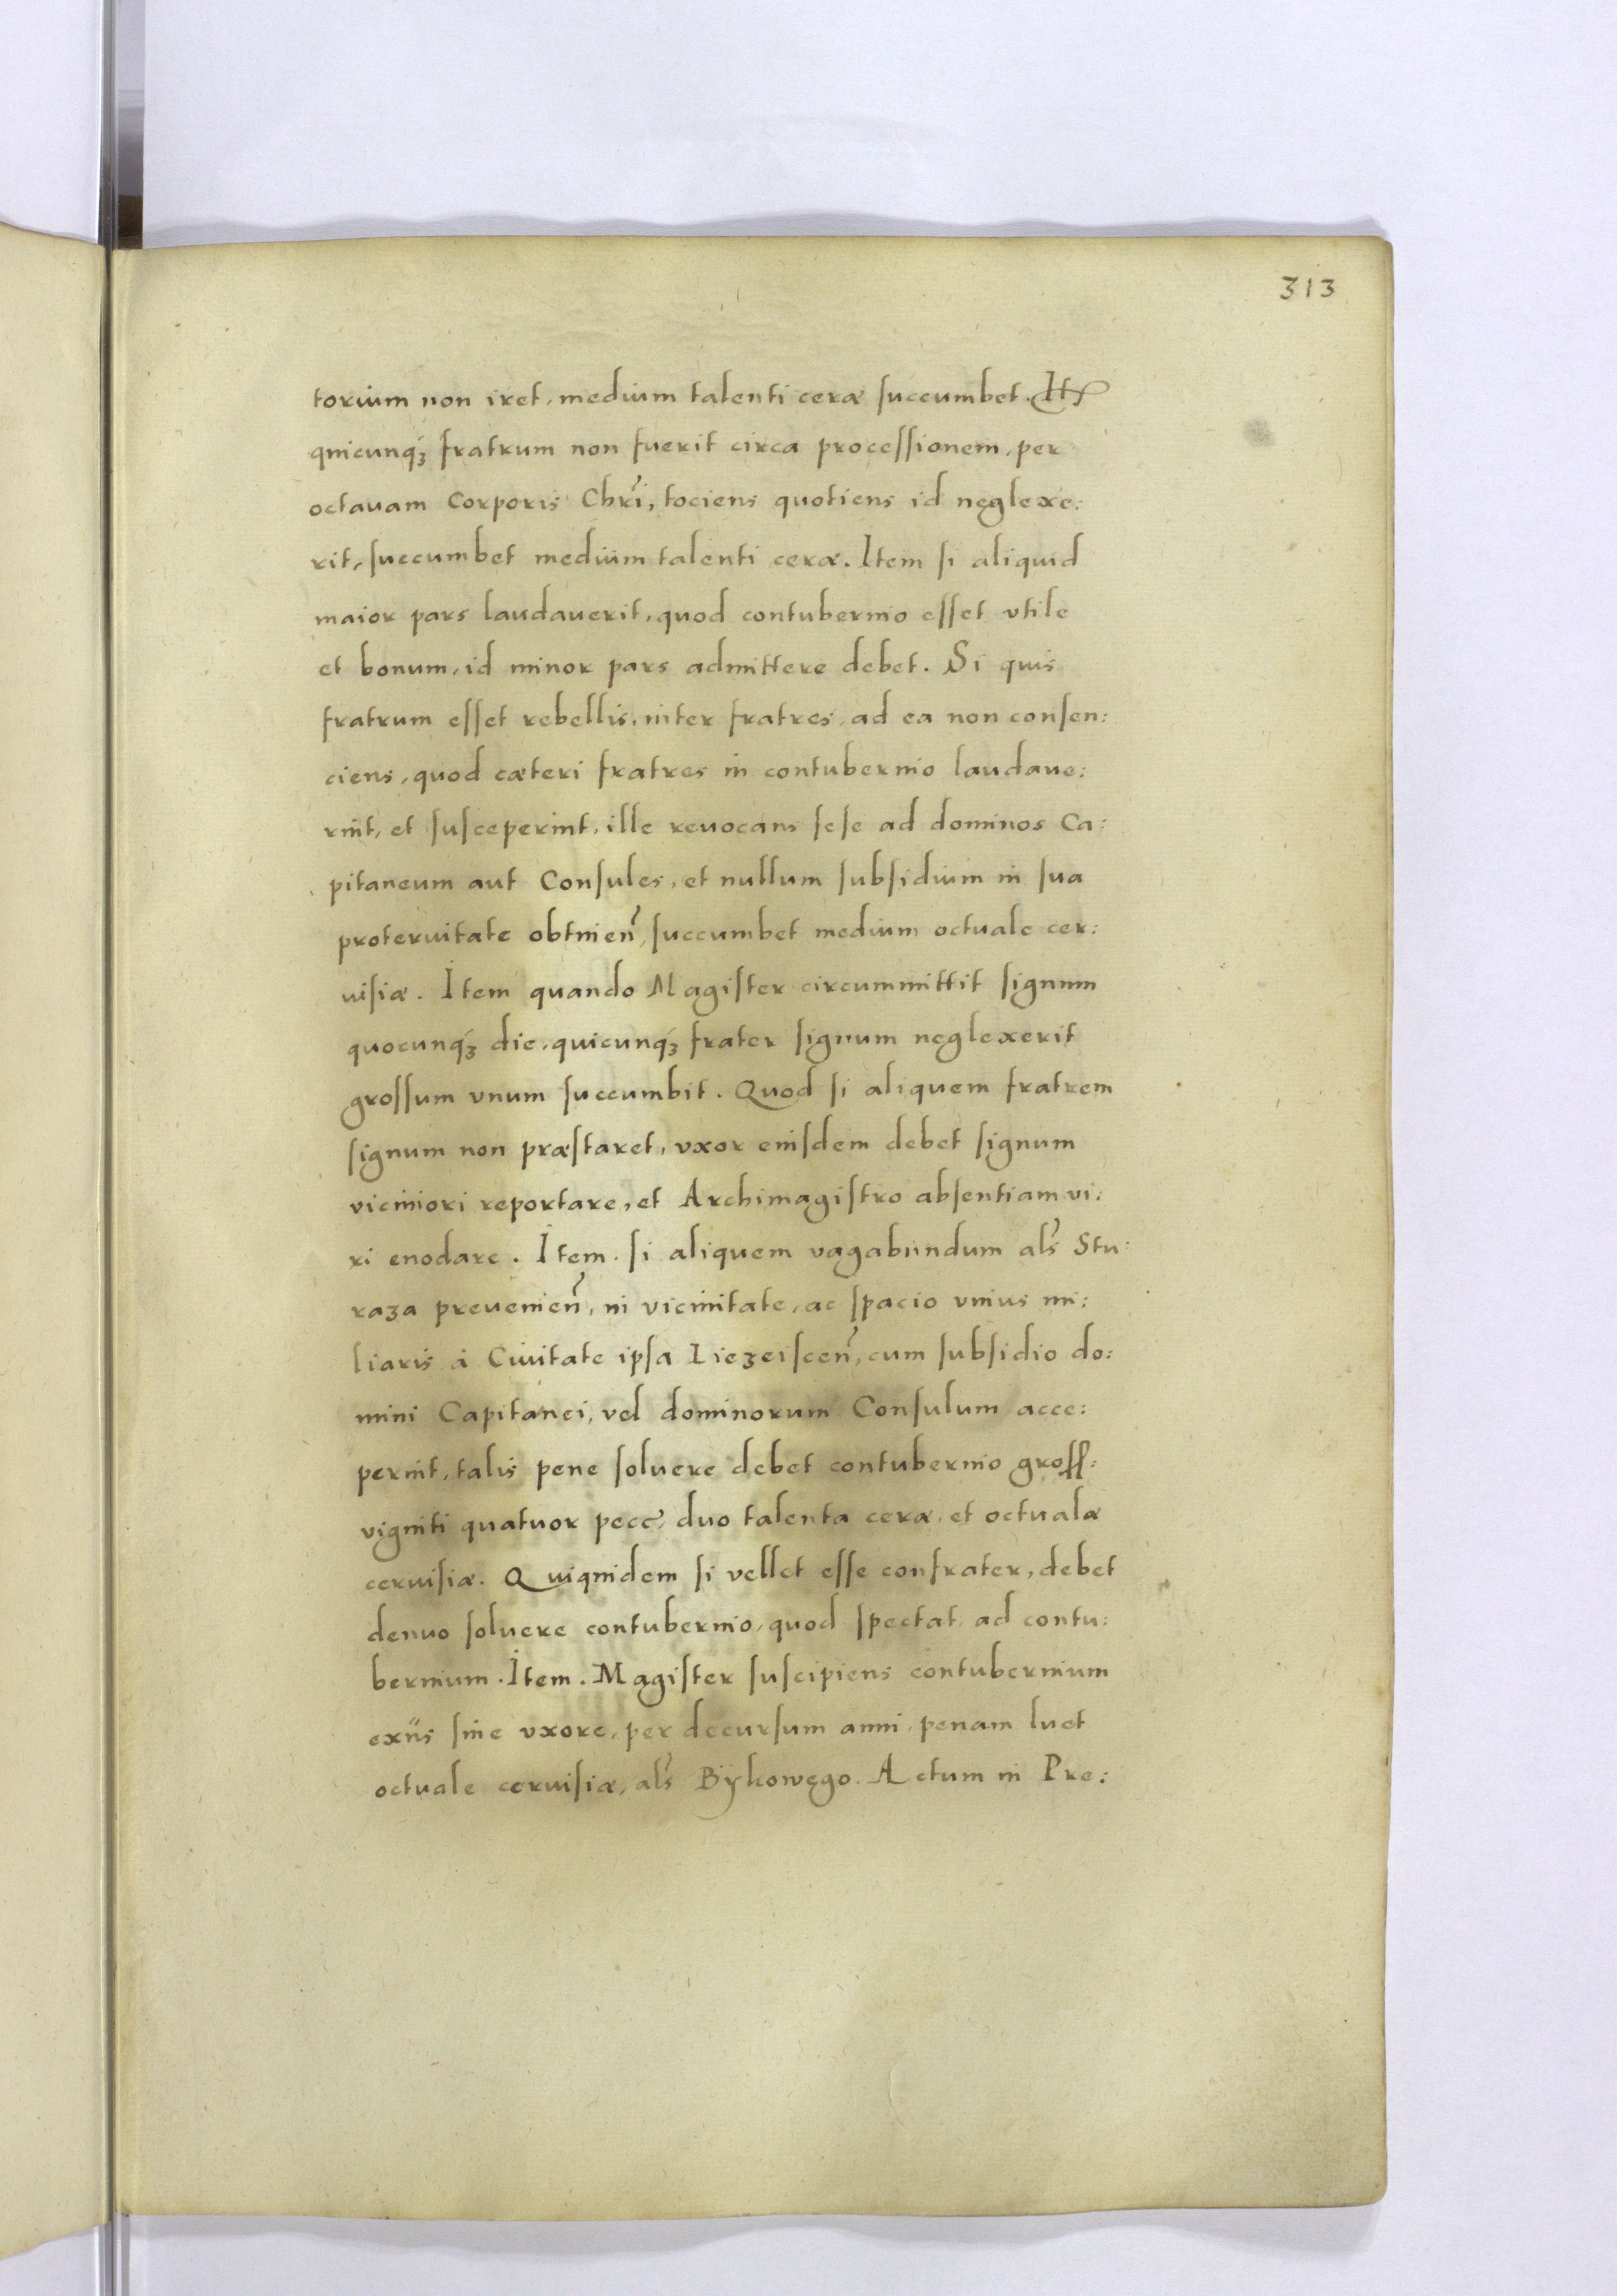 313
torium non iret, medium talenti ceræ succumbet. Itẽ
quicunq́ꝫ fratrum non fuerit circa processionem, per
octauam Corporis Chrĩ, tociens quotiens id neglexe:
rit, succumbet medium talenti ceræ. Item si aliquid
maior pars laudauerit, quod contubernio esset vtile
et bonum, id minor pars admittere debet. Si quis
fratrum esset rebellis, inter fratres, ad ea non consen:
ciens, quod cæteri fratres in contubernio laudaue:
rint, et susceperint, ille reuocans sese ad dominos Ca:
pitaneum aut Consules, et nullum subsidium in sua
proteruitate obtinen̄, succumbet medium octuale cer:
uisiæ. Item quando Magister circummittit signum
quocunq́ꝫ die, quicunq́ꝫ frater signum neglexerit
grossum vnum succumbit. Quod si aliquem fratrem
signum non præstaret, vxor eiusdem debet signum
viciniori reportare, et Archimagistro absentiam vi:
ri enodare. Item. si aliquem vagabundum als̃ Stu:
raza preuenien̄, in vicinitate, ac spacio vnius mi:
liaris à Ciuitate ipsa Liezeiscen̄, cum subsidio do:
mini Capitanei, vel dominorum Consulum acce:
perint, talis pene soluere debet contubernio gross:
viginti quatuor pecc̃, duo talenta ceræ, et octualæ
ceruisiæ. Quiquidem si vellet esse confrater, debet
denuo soluere contubernio, quod spectat ad contu:
bernium. Item. Magister suscipiens contubernium
exiis sine vxore, per decursum anni, penam luet
octuale ceruisiæ, als̃ Bÿkowęgo. Actum in Pre: